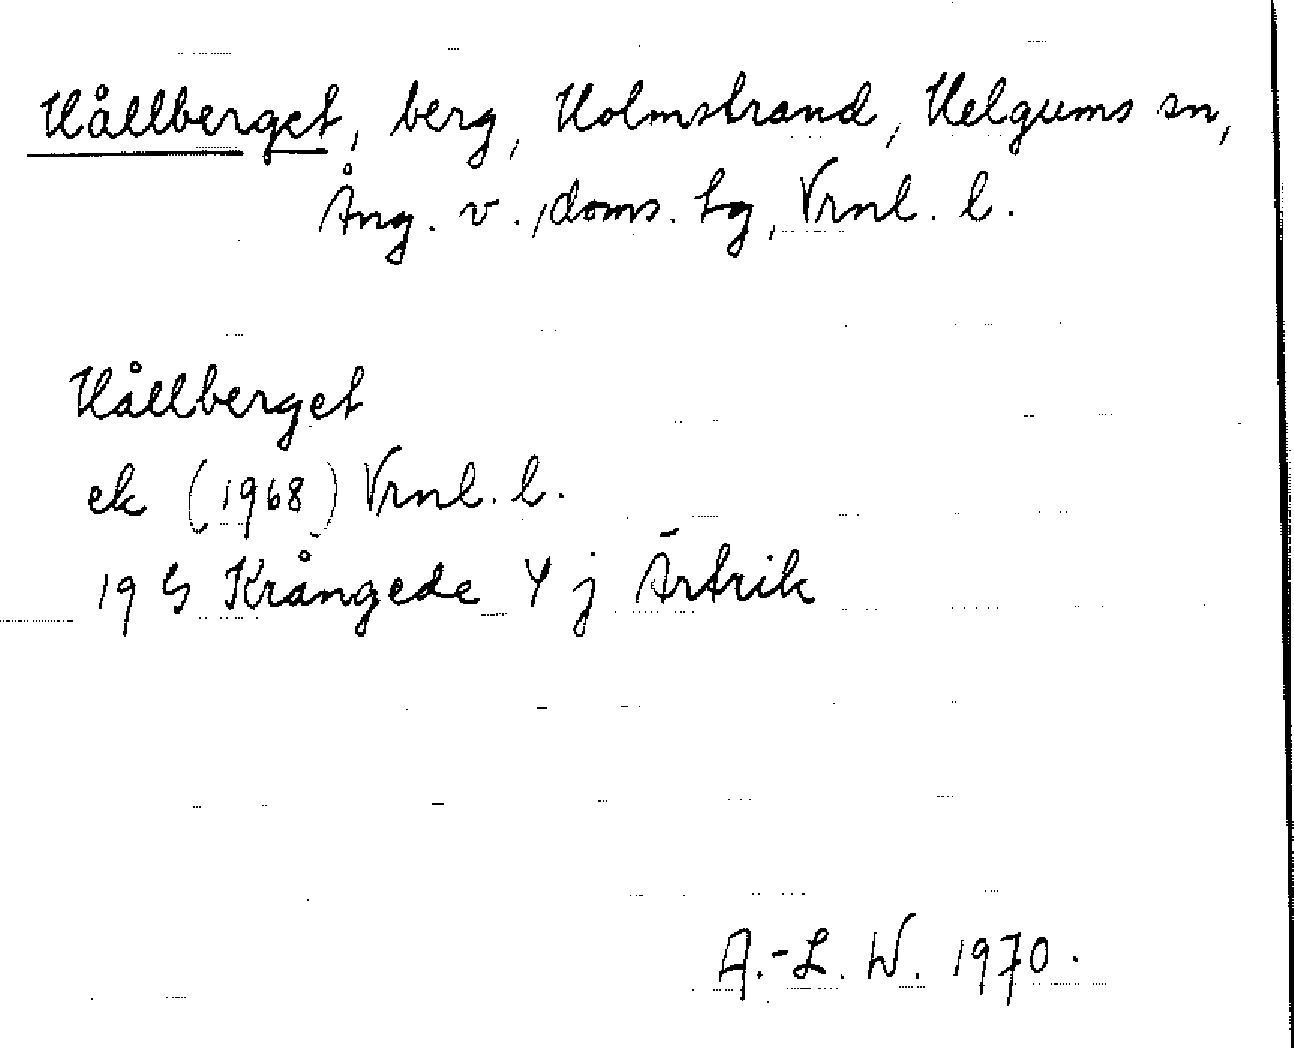 Hållberget, berg, Holmstrand, Helgums sn,
Ång. v., doms. hg, Vrnl. l.
Hållberget
ek (1968) Vrnl. l.
19 G Krångede Y j Ärtrik
A.-L. W. 1970.